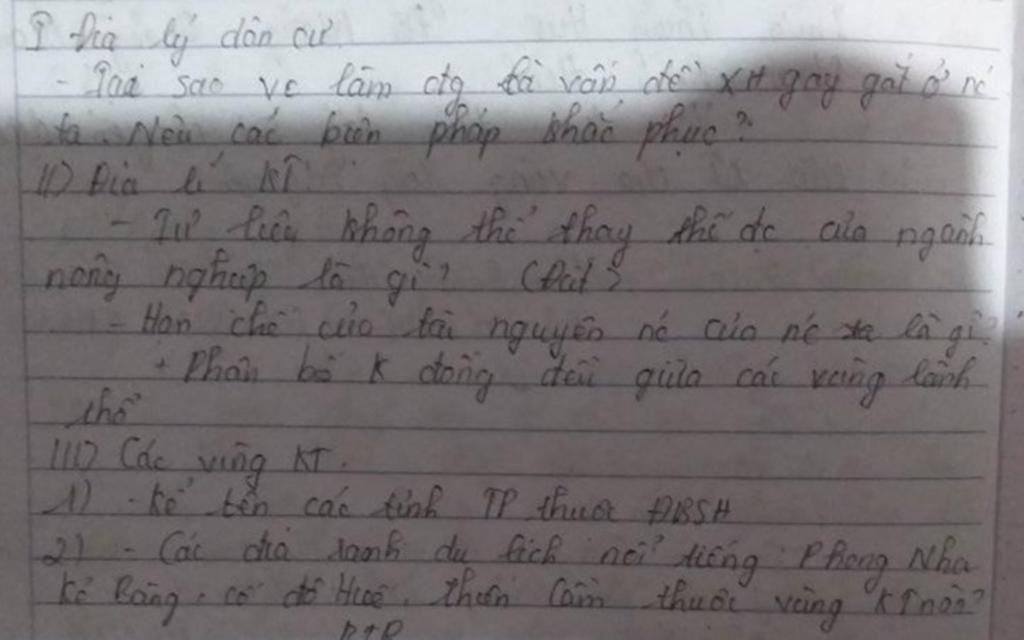 I Địa lý dân cư
- Tại sao vc làm đg là vấn đề XH gay gắt ở nc
ta. Nêu các biện pháp khắc phục?
II) Địa lí KT
- Tư liệu không thể thay thế đc của ngành
nông nghiệp là gì? (Đất)
- Hạn chế của tài nguyên nc của nc ta là gì?
+ Phân bố k đồng đều giữa các vùng lãnh
thổ
III) Các vùng KT.
1) - Kể tên các tỉnh TP thuộc ĐBSH
2) - Các địa danh du lịch nổi tiếng Phong Nha
Kẻ Bàng, cố đô Huế, thiên Cầm thuộc vùng KT nào?
BTB